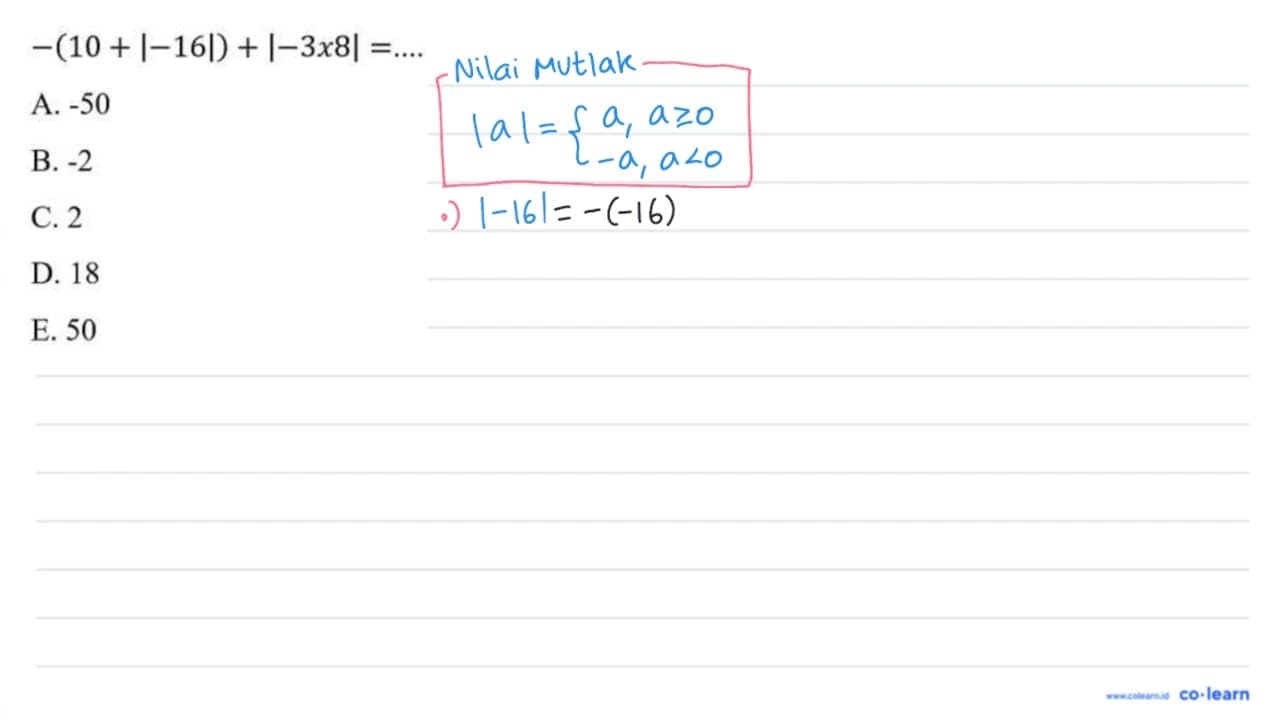 −(10 + |−16|) + |−3x8| =....
A. -50
B. -2
C. 2
D. 18
E. 50
Nilai Mutlak
|a| = { a, a≥0
-a, a<0
•) |-16| = -(-16)
www.colearn.id co·learn